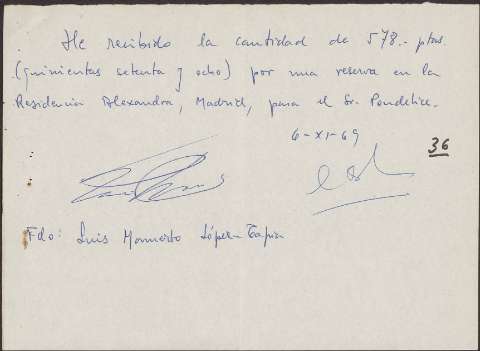 He recibido la cantidad de 578.- ptas.
(quinientas setenta y ocho) por una reserva en la
Residencia Alexandra, Madrid, para el Sr.
6-XI-69
36
Fdo: Luis López-Tapia